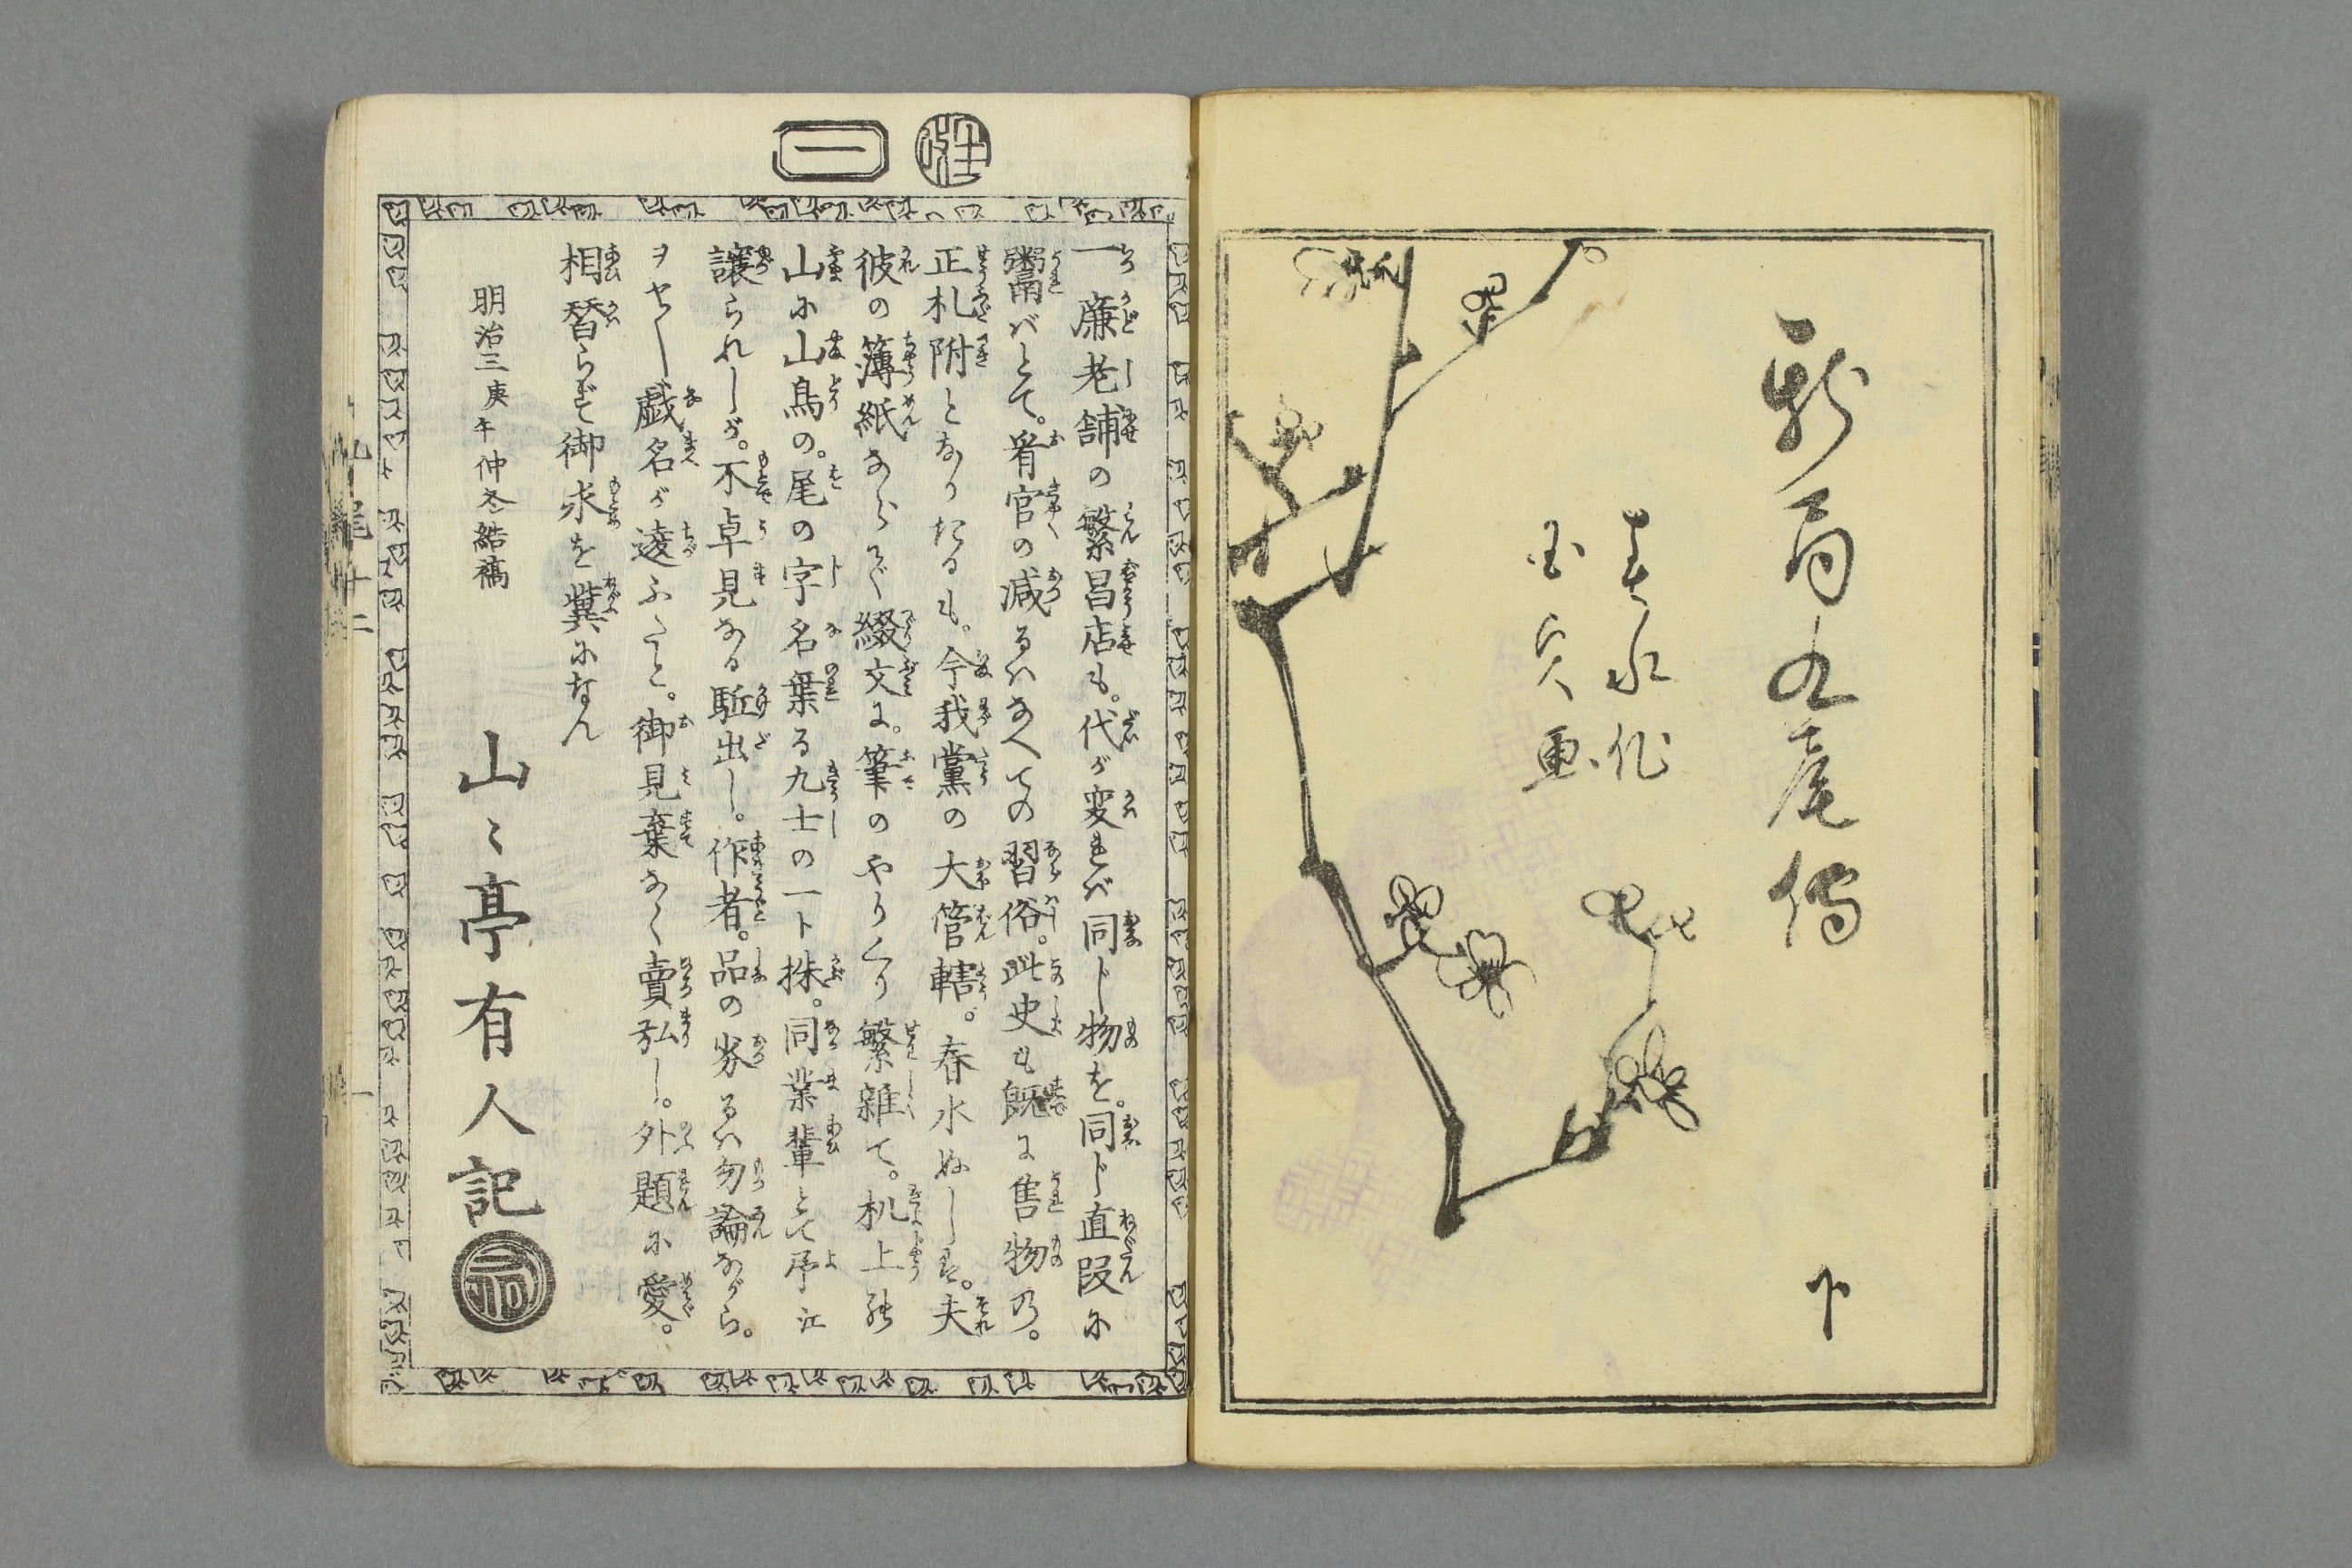 新局九尾傳
春水作
国貞画
下
一
一廉老舗の繁昌店も。代が変れば同じ物を。同じ直段に
鬻ばとて。肴官の減るはなべての習俗。此史も既に售物の。
正札附となりたるも。今我黨の大管轄。春水ぬしは。夫
彼の薄紙ならで綴文に。筆のやりくり繁雑て。机上
山に山鳥の。尾の字名葉る九士の一ト株。同業輩とて
譲られしが。不卓見なる駈出し。作者。品の劣るは勿論ながら。
ヲヤ〳〵戯名が違ふたと。御見棄なく賣弘し。外題に愛。
相替らずて御求を冀になん
明治三庚午仲冬結稿
山〻亭有人記
九尾廿二
一